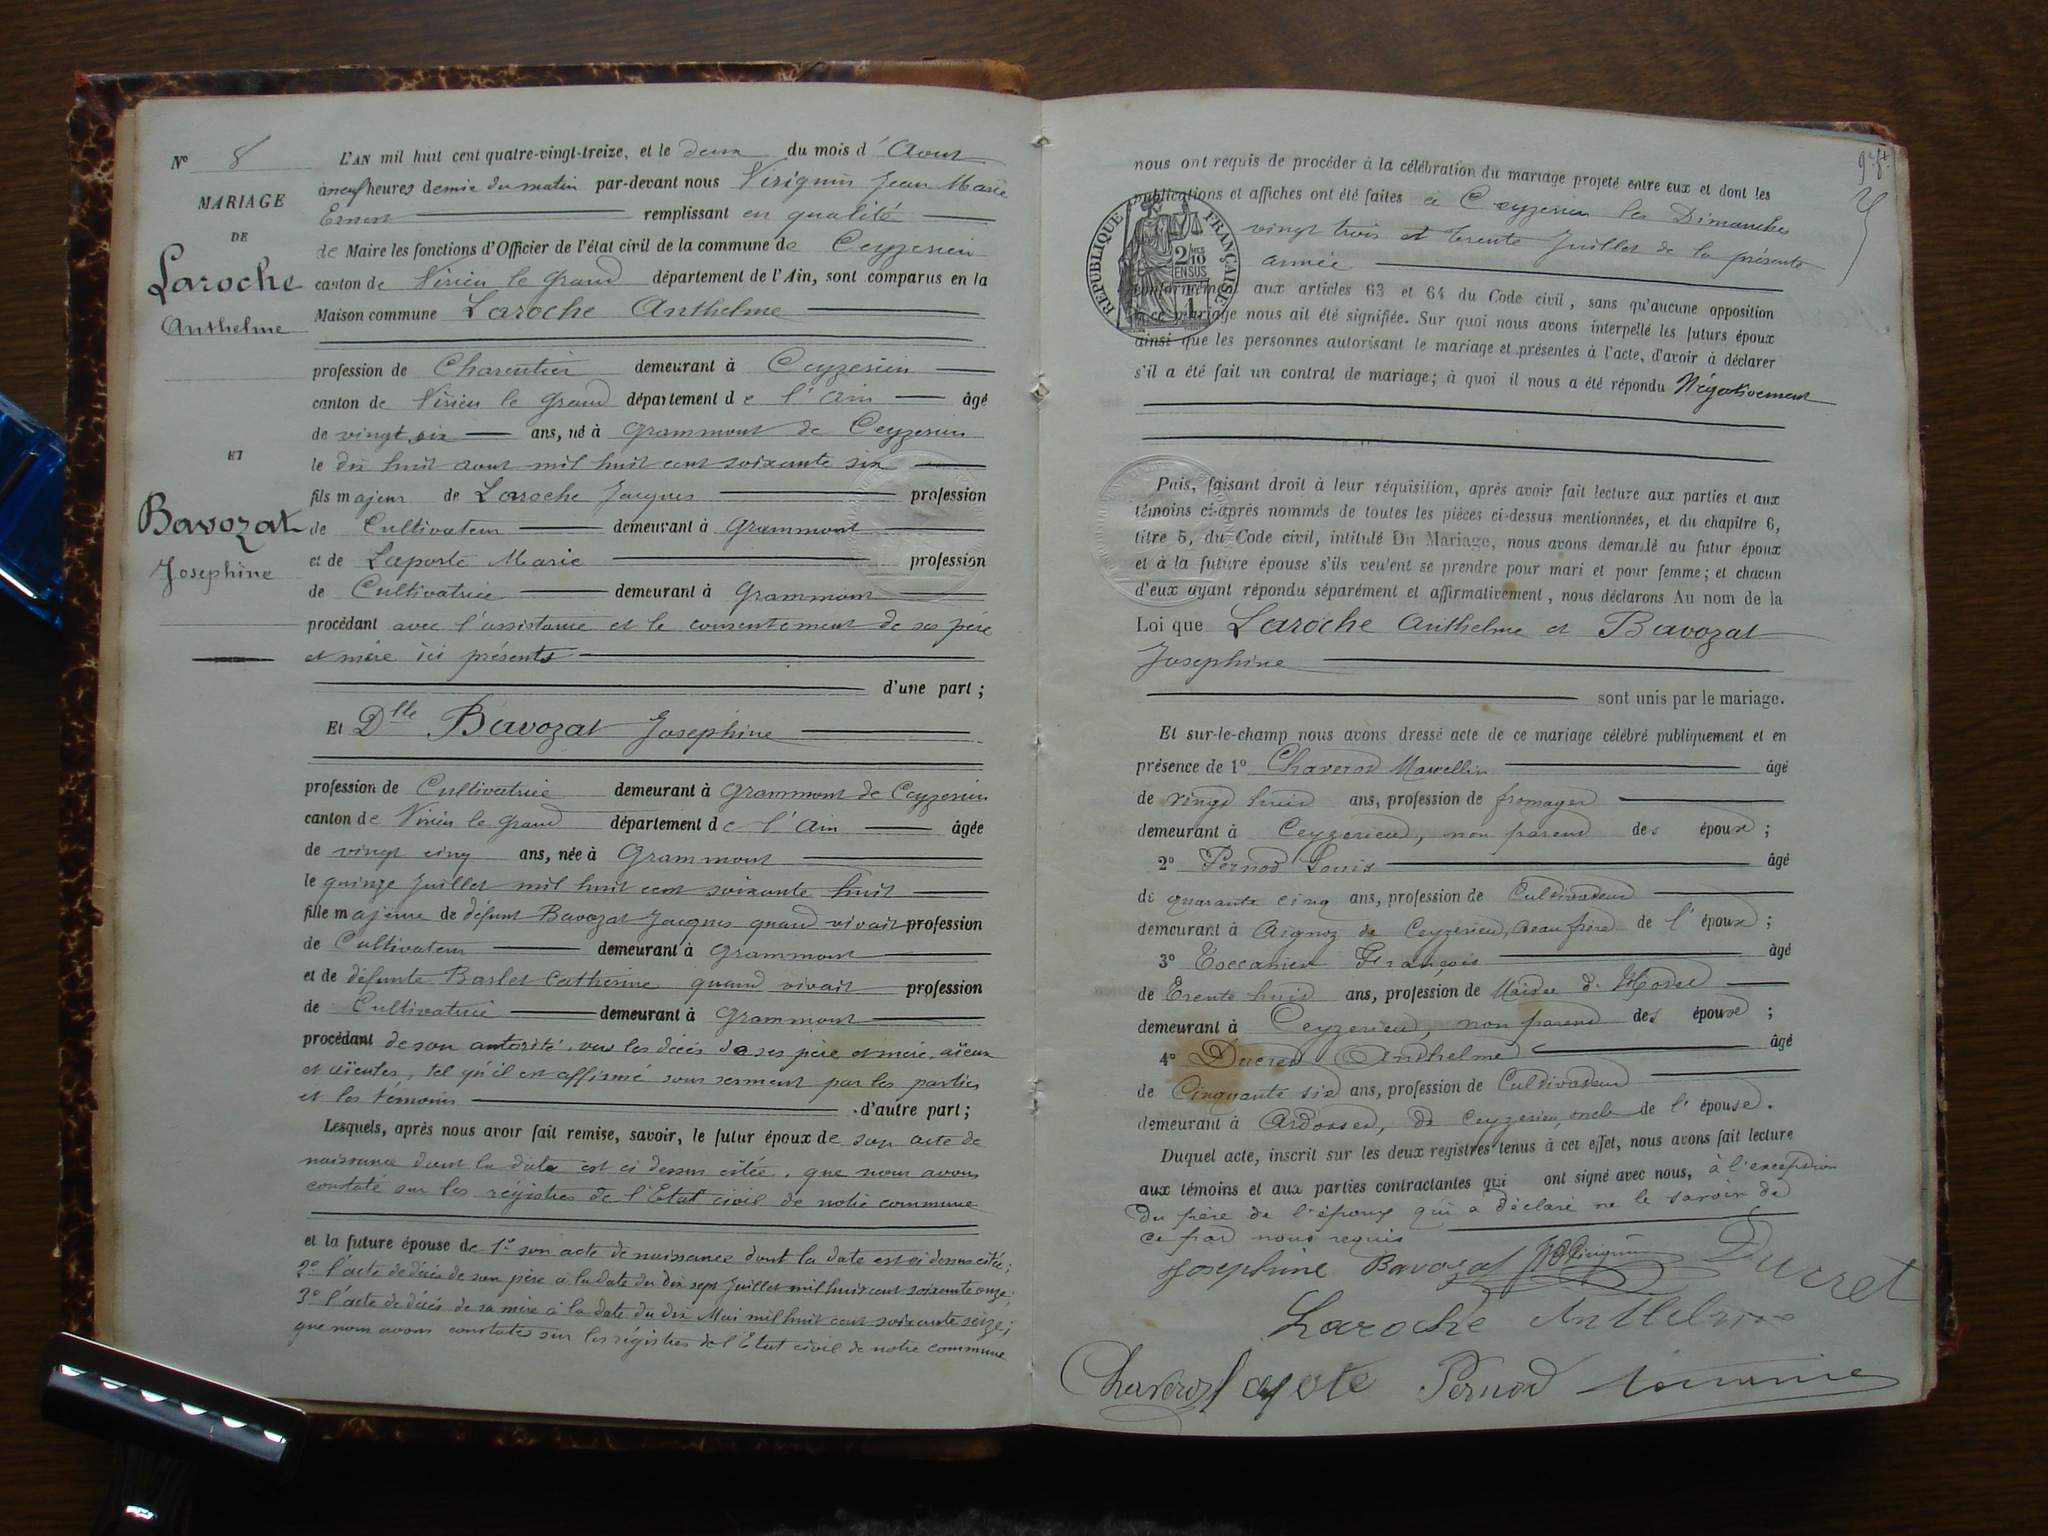 N° 8
MARIAGE
DE
Laroche
Anthelme
ET
Bavozat
Josephine
L'AN mil huit cent quatre-vingt-treize, et le deux du mois d'Aout
à neuf heures demie du matin par-devant nous Virignin Jean Marie
Ernest remplissant en qualité
de Maire les fonctions d'Officier de l'état civil de la commune de Ceyzerieu
canton de Virieu le Grand département de l'Ain, sont comparus en la
Maison commune Laroche Anthelme
profession de Charentier demeurant à Ceyzerieu
canton de Virieu le Grand département de l'Ain âgé
de vingt six ans, né à Grammont de Ceyzerieu
le dix huit aout mil huit cent soixante six
fils majeur de Laroche Jacques profession
de Cultivateur demeurant à Grammont
et de Laporte Marie profession
de Cultivatrice demeurant à Grammont
procédant avec l'assistance et le consentement de ses père
et mère ici présents
d'une part ;
Et Dlle Bavozat Josephine
profession de Cultivatrice demeurant à Grammont de Ceyzerieu
canton de Virieu le Grand département de l'Ain âgée
de vingt cinq ans, née à Grammont
le quinze Juillet mil huit cent soixante huit
fille majeure de défunt Bavozat Jacques quand vivait profession
de Cultivateur demeurant à Grammont
et de défunte Barlet Catherine quand vivait profession
de Cultivatrice demeurant à Grammont
procédant de son autorité, vu les décès de ses père et mère, aïeux
et aïeules, tel qu'il est affirmé sous serment par les parties
et les témoins d'autre part ;
Lesquels, après nous avoir fait remise, savoir, le futur époux de son acte de
naissance dont la date est ci dessus citée, que nous avons
constaté sur les régistres de l'Etat civil de notre commune
et la future épouse de 1° son acte de naissance dont la date est ci dessus citée;
2° l'acte de décès de son père à la date du dix sept Juillet mil huit cent soixante onze;
3° l'acte de décès de sa mère à la date du dix Mai mil huit cent soixante seize;
que nous avons constatés sur les régistres de l'Etat civil de notre commune
nous ont requis de procéder à la célébration du mariage projeté entre eux et dont les
publications et affiches ont été faites à Ceyzerieu les Dimanches
vingt trois et trente Juillet de la présente
année
RÉPUBLIQUE FRANÇAISE
2/10
EN SUS
conformément aux articles 63 et 64 du Code civil, sans qu'aucune opposition
à ce mariage nous ait été signifiée. Sur quoi nous avons interpellé les futurs époux
ainsi que les personnes autorisant le mariage et présentes à l'acte, d'avoir à déclarer
s'il a été fait un contrat de mariage; à quoi il nous a été répondu Négativement
Puis, faisant droit à leur réquisition, après avoir fait lecture aux parties et aux
témoins ci-après nommés de toutes les pièces ci-dessus mentionnées, et du chapitre 6,
titre 5, du Code civil, intitulé Du Mariage, nous avons demandé au futur époux
et à la future épouse s'ils veulent se prendre pour mari et pour femme; et chacun
d'eux ayant répondu séparément et affirmativement, nous déclarons Au nom de la
Loi que Laroche Anthelme et Bavozat
Josephine
sont unis par le mariage.
Et sur-le-champ nous avons dressé acte de ce mariage célébré publiquement et en
présence de 1° Chaverot Marcellin âgé
de vingt huit ans, profession de fromager
demeurant à Ceyzerieu, non parent des époux ;
2° Pernod Louis âgé
de quarante cinq ans, profession de Cultivateur
demeurant à Aignoz de Ceyzerieu, beau frère de l'époux ;
3° Toccanier François âgé
de trente huit ans, profession de Maitre d'Hotel
demeurant à Ceyzerieu, non parent des époux ;
4° Ducret Anthelme âgé
de Cinquante six ans, profession de Cultivateur
demeurant à Ardosset, de Ceyzerieu, oncle de l'épouse.
Duquel acte, inscrit sur les deux registres tenus à cet effet, nous avons fait lecture
aux témoins et aux parties contractantes qui ont signé avec nous, à l'exception
du père de l'époux qui a déclaré ne le savoir de
ce par nous requis
Josephine Bavozat Virignin Ducret
Laroche Anthelme
Chaverot Laporte Pernod Toccanier